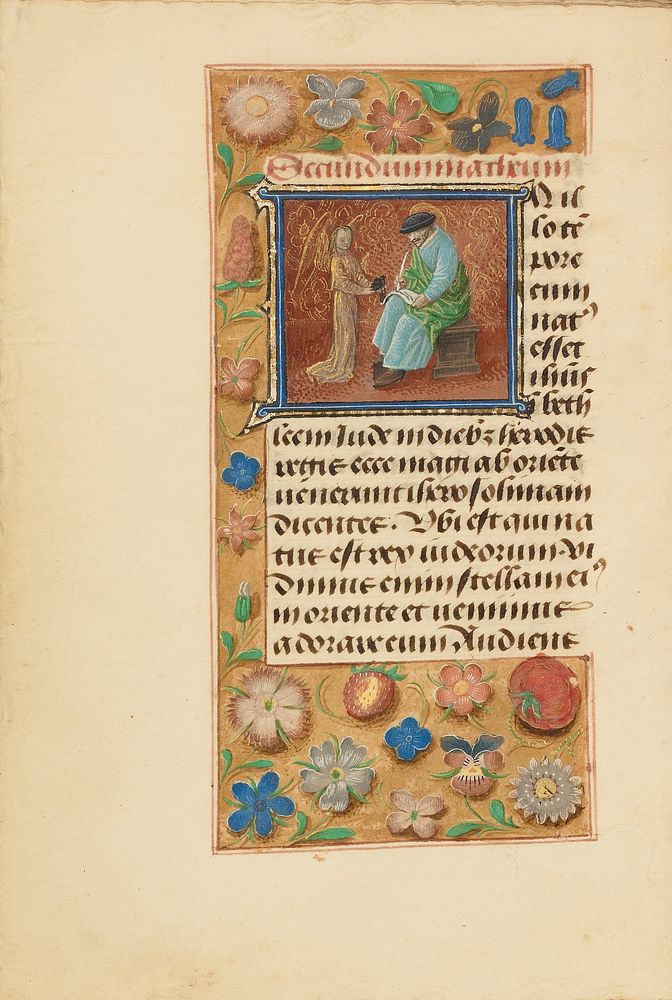 Secundum matheum
In il
lo tē
pore
cum
nat⁹
esset
ihūs
ī beth
leem Jude in dieb⁊ herodis
regis ecce magi ab oriēte
venerunt iherosolimam
dicentes. Vbi est qui na
tus est rex iudeorum. Vi
dimus enim stellam ei⁹
in oriente et venimus
adorare eum Audiens